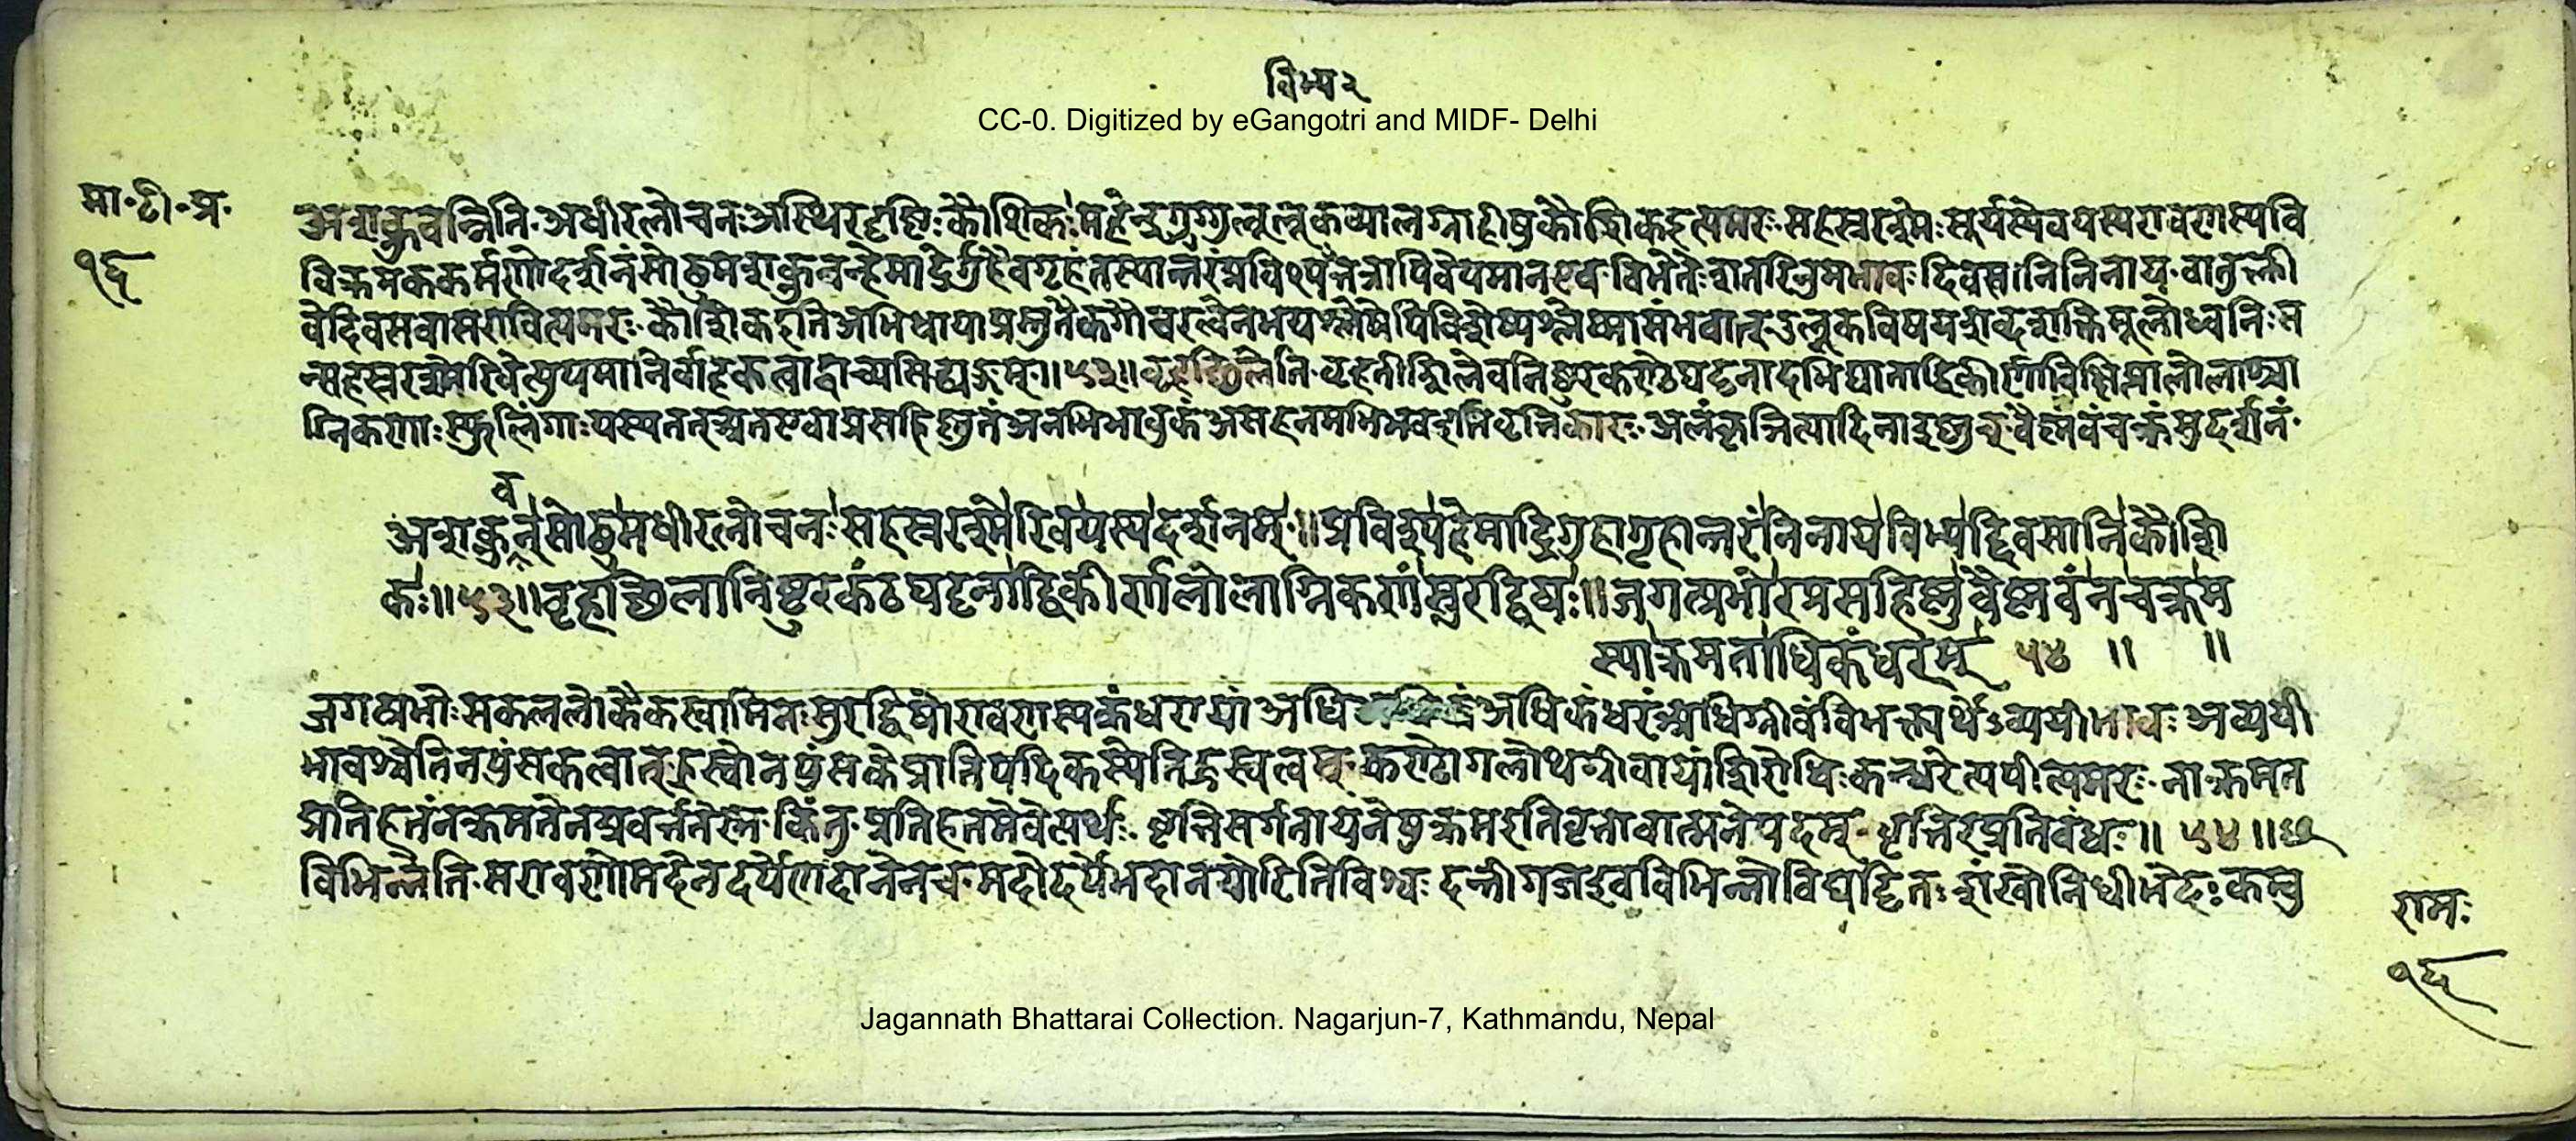 विभ्य २
CC-0. Digitized by eGangotri and MIDF- Delhi
मा॰ टी॰ प्र॰
१६
अशक्नुवन्निति॰ अधीरलोचनः अस्थिरदृष्टिः कौशिकः महेंद्रगुग्गुलूलूकव्यालग्राहीषु कौशिक इत्यमरः सहस्ररश्मेः सूर्यस्यैव यस्य रावणस्य वि
विक्रमैककर्मणो दर्शनं सोढुमशक्नुवन् हेमाद्रेर्गुहैव गृहं तस्यान्तरं प्रविश्य तत्रापि वेपमान एव विभ्यत् दिवसानि निनाय॰ वा तु क्ली
वे दिवसवासरावित्यमरः कौशिक इति अभिधाया प्रस्तुतैकगोचरत्वेनभयश्लेषेपि विशेष्यश्लेषासंभवात् उलूकविषयशब्दशक्तिमूलो ध्वनिः स
न्सहस्ररश्मेरिवेत्युपमानिर्वाहकत्वाद्वाच्यसिद्ध्यङ्गम् ॥ ५३ ॥ बृहच्छिलेति॰ बृहती शिलेव निष्ठुरकण्ठघट्टनादभिघाताद्विकीर्णाविक्षिप्तालोलाश्चा
ग्निकणाः स्फुलिंगाः यस्य तत्
व
अशक्नुन् सोढुमधीरलोचनः सहस्ररश्मेरिव यस्य दर्शनम् ॥ प्रविश्य हेमाद्रिगुहागृहान्तरं निनाय विभ्यद्दिवसानि कौशि
कः ॥ ५३ ॥ बृहच्छिलानिष्ठुरकंठघट्टनाद्विकीर्णलोलाग्निकणं सुरद्विषः ॥ जगत्प्रभोरप्रसहिष्णु वैष्णवं न चक्रम
स्याक्रमताधिकंधरम् ५४ ॥ ॥
जगत्प्रभोः सकललोकैकस्वामिनः सुरद्विषो रावणस्य कंधरायां अधि अधिकंधरं अधिग्रीवं विभक्त्यर्थेऽव्ययीभावः अव्ययी
भावश्चेति नपुंसकत्वात् ह्रस्वो नपुंसके प्रातिपदिकस्येति ह्रस्वत्वम् कण्ठो गलोथ ग्रीवायां शिरोधिः कन्धरेत्यपीत्यमरः नाक्रमत
प्रतिहतं नक्रमतेन प्रवर्त्तते स्म किंतु प्रतिहतमेवेत्यर्थः॰ वृत्तिसर्गतायनेषु क्रम इति वृत्तावात्मनेपदम् वृत्तिरप्रतिबंधः ॥ ५४ ॥ छ
विभिन्नेति॰ स रावणो मदेन दर्पेण दानेन च॰ दन्ती गज इव विभिन्नो विघट्टितः शंखो निधीभेदः कम्बु
रामः
१६
Jagannath Bhattarai Collection. Nagarjun-7, Kathmandu, Nepal